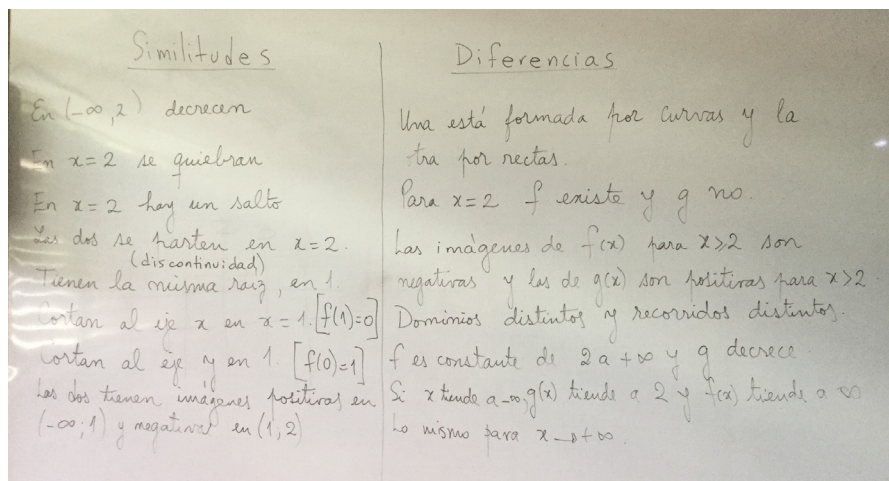 Similitudes
En (-∞, 2) decrecen
En x=2 se quiebran
En x=2 hay un salto
Las dos se parten en x=2.
(discontinuidad)
Tienen la misma raiz, en 1.
Cortan al eje x en x=1. [f(1)=0]
Cortan al eje y en 1. [f(0)=1]
Las dos tienen imágenes positivas en
(-∞; 1) y negativas en (1, 2)
Diferencias
Una está formada por curvas y la
otra por rectas.
Para x=2 f existe y g no.
Las imágenes de f(x) para x⩾2 son
negativas y las de g(x) son positivas para x>2
Dominios distintos y recorridos distintos.
f es constante de 2 a +∞ y g decrece.
Si x tiende a -∞, g(x) tiende a 2 y f(x) tiende a ∞
Lo mismo para x→+∞.